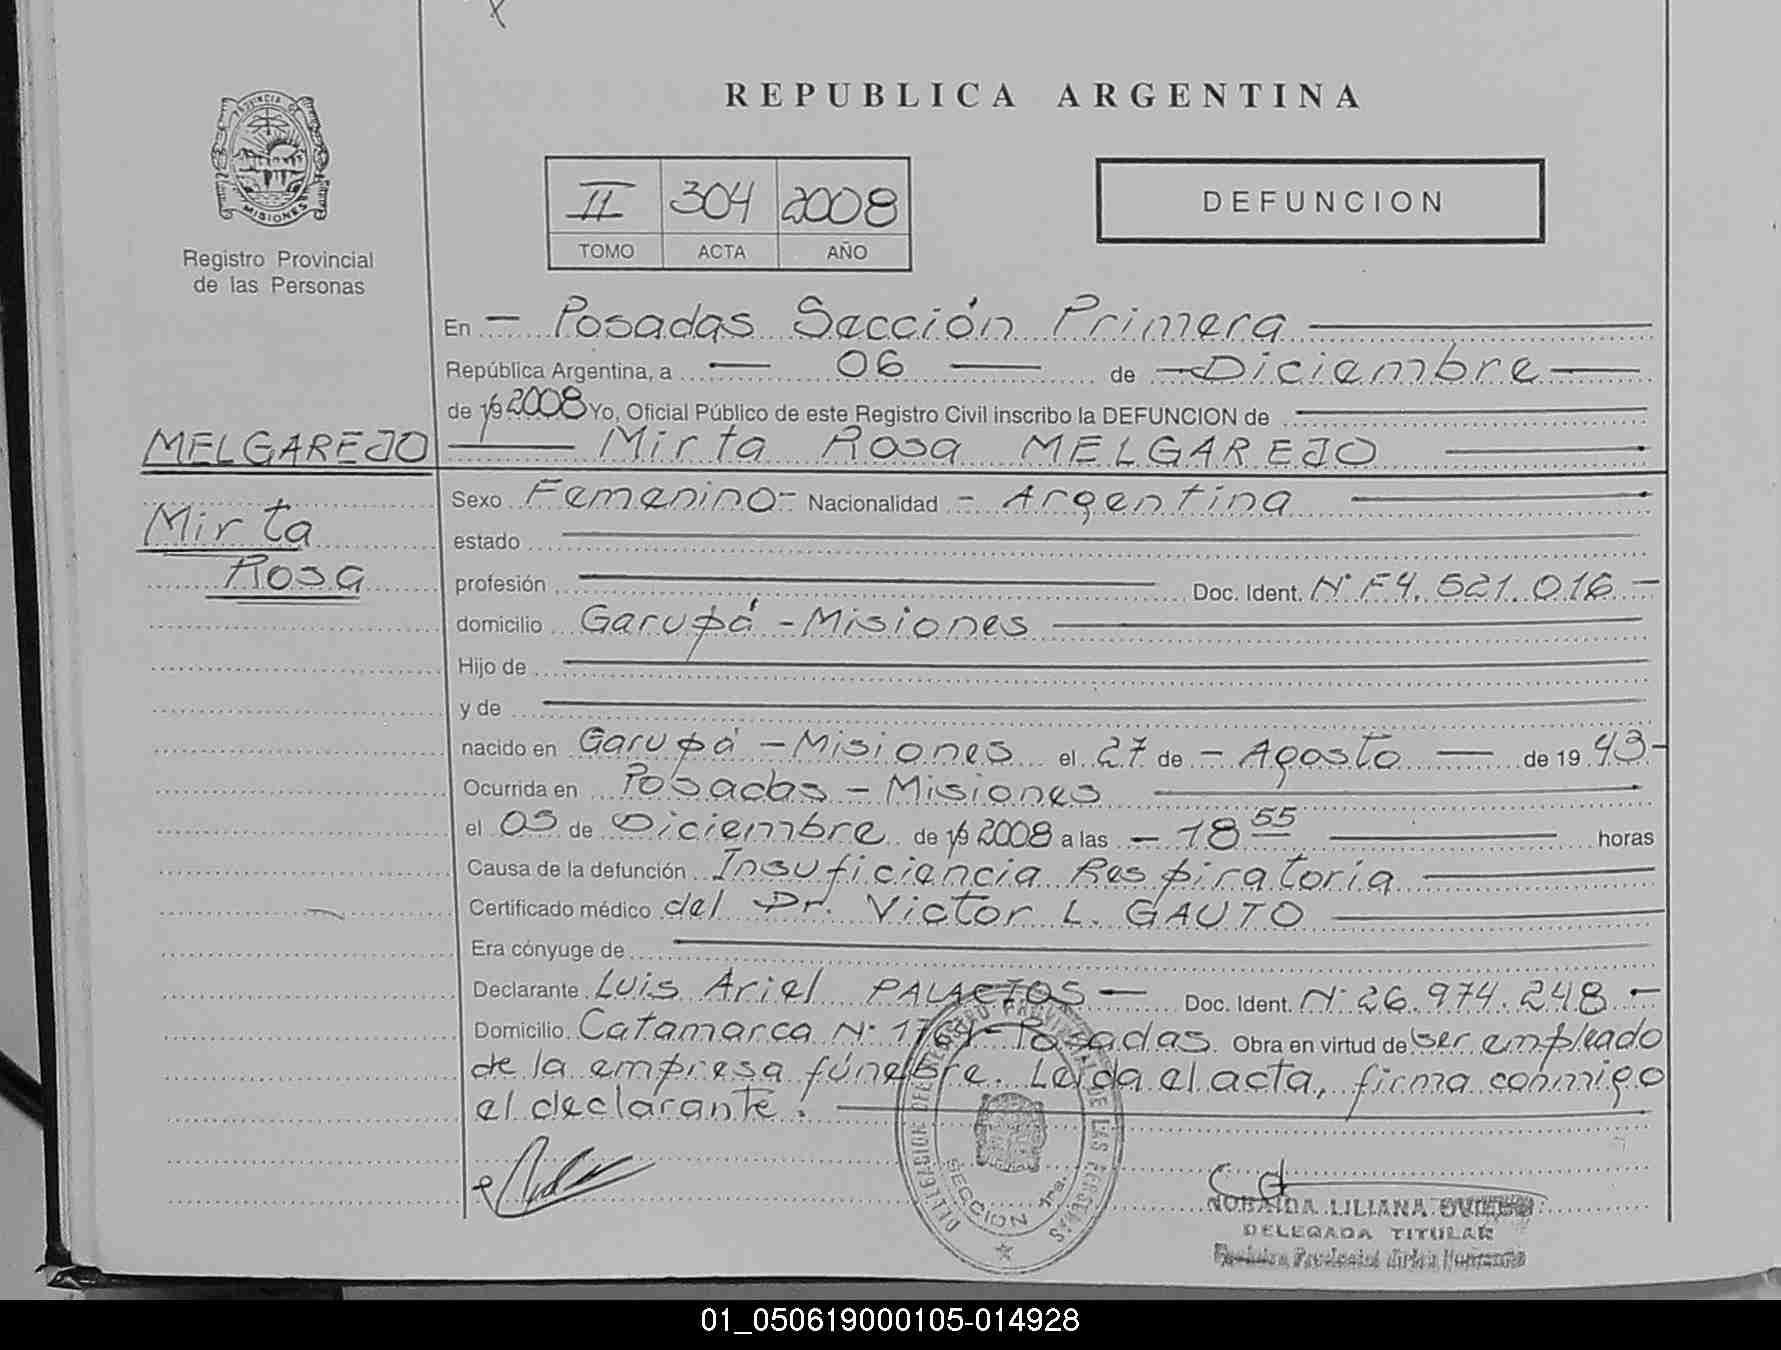 REPUBLICA ARGENTINA
PROVINCIA DE
MISIONES
Registro Provincial
de las Personas
II 304 2008
TOMO ACTA AÑO
DEFUNCION
En — Posadas Sección Primera
República Argentina, a — 06 — de — Diciembre —
de 19 2008 Yo, Oficial Público de este Registro Civil inscribo la DEFUNCION de
MELGAREJO — Mirta Rosa MELGAREJO —
Mirta
Rosa
Sexo Femenino - Nacionalidad - Argentina
estado
profesión Doc. Ident. N° F4.521.016 -
domicilio Garupá - Misiones
Hijo de
y de
nacido en Garupá - Misiones el 27 de - Agosto — de 19 43 -
Ocurrida en Posadas - Misiones
el 05 de Diciembre de 19 2008 a las - 18 55 horas
Causa de la defunción Insuficiencia Respiratoria
Certificado médico del Dr. Victor L. GAUTO
Era cónyuge de
Declarante Luis Ariel PALACIOS - Doc. Ident. N° 26.974.248 -
Domicilio Catamarca N° 1764 - Posadas Obra en virtud de ser empleado
de la empresa fúnebre. Leída el acta, firma conmigo
el declarante.
DELEGACION DEL REGISTRO PROVINCIAL DE LAS PERSONAS
SECCION 1ra.
NORAIDA LILIANA OVIEDO
DELEGADA TITULAR
01_050619000105-014928